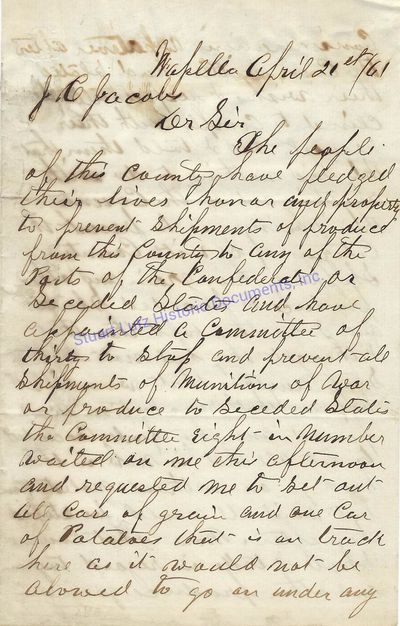 Wapella April 21st /61
J C Jacobs
Dr Sir
The people
of this County have pledged
their lives honor and property
to prevent Shipments of produce
from this County to any of the
Ports of the Confederate or
Seceded States and have
appointed a Committee of
thirty to Stop and prevent all
Shipments of Munitions of War
or produce to Seceded States
the Committee Eight in Number
waited on me this afternoon
and requested me to Set out
all Cars of grain and one Car
of Potatoes that is on track
here as it would not be
alowed to go on under any
Stuart Lutz Historic Documents, Inc